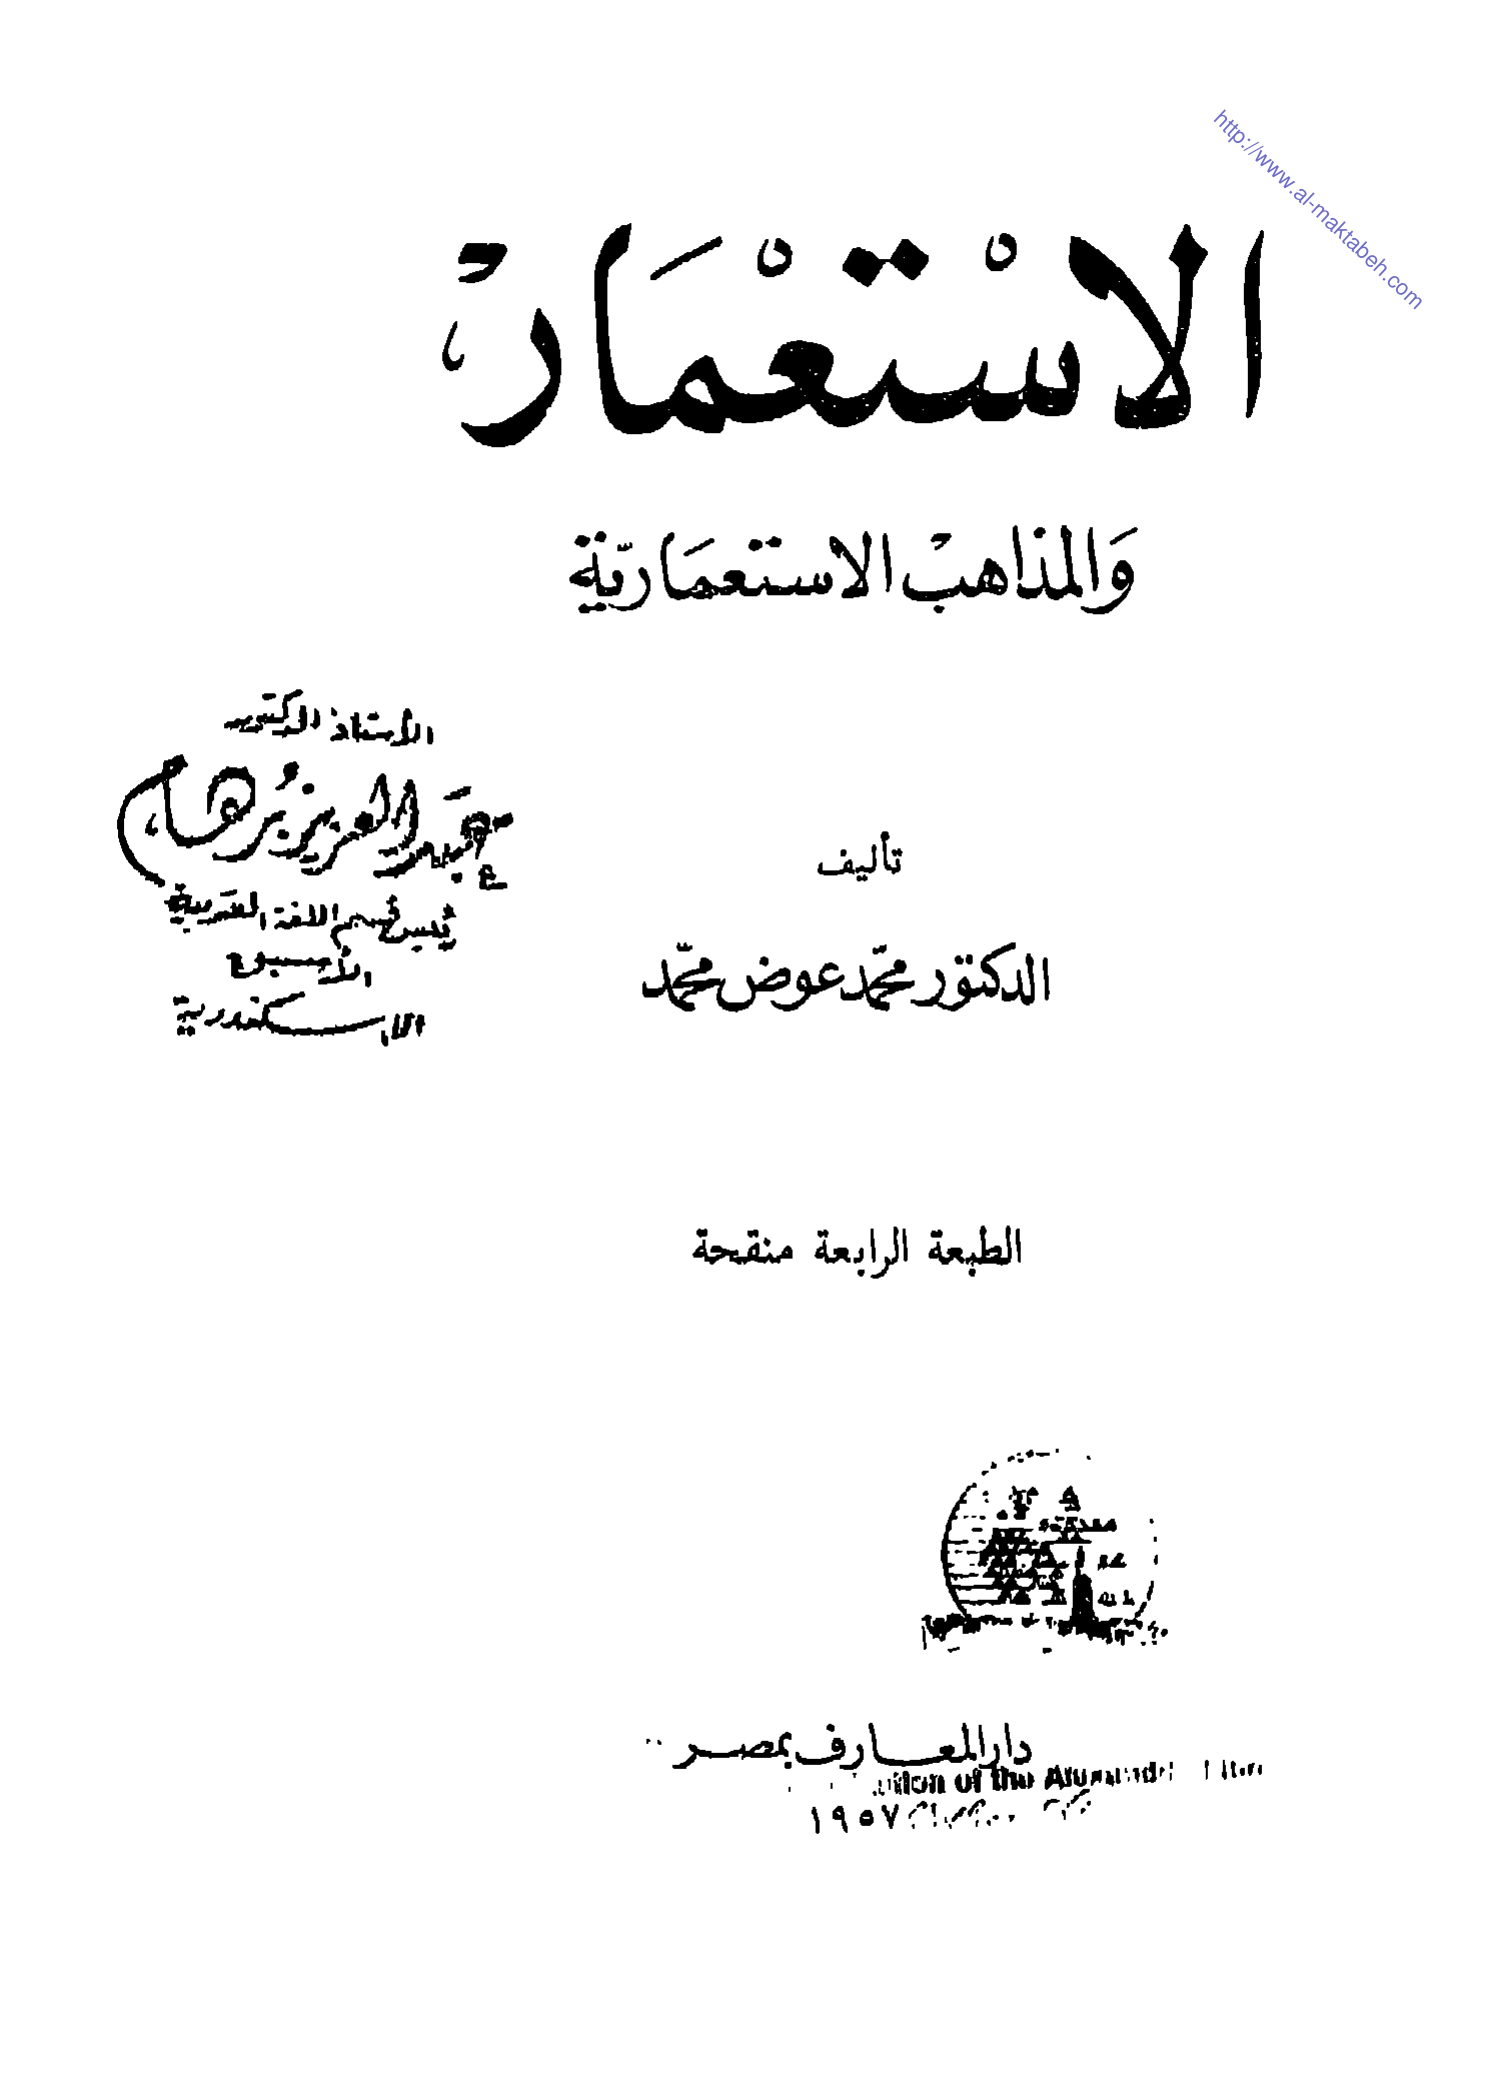 http://www.al-maktabeh.com
الاسْتعْمَارْ
وَالمذاهبْ الاستعمَاريّة
الأستاذ الدكتور
عبد العزيز بُرهام
رئيس قسم اللغة العربية
الاسكندرية
تأليف
الدكتور محمّد عوض محمّد
الطبعة الرابعة منقحة
دار المعارف بمصر
of the
١٩٥٧